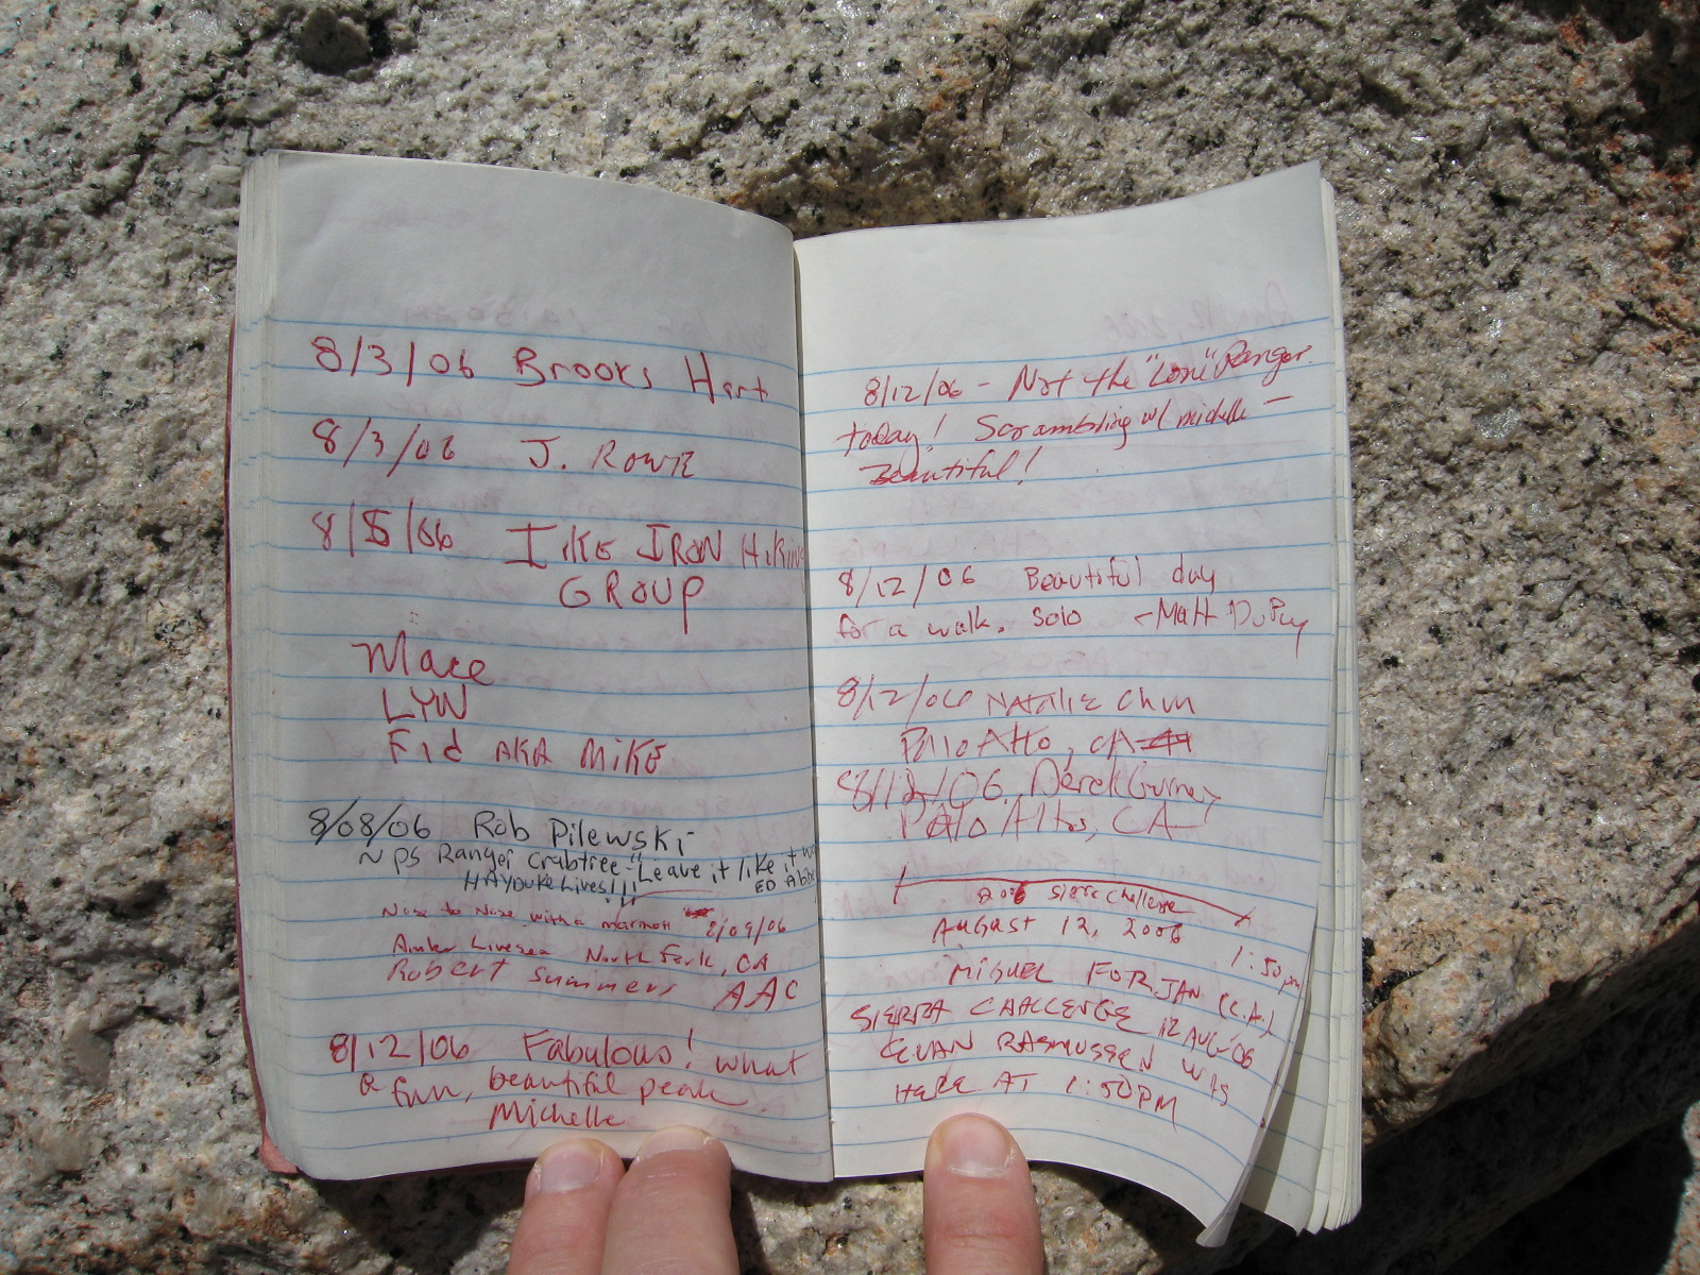 8/3/06 Brooks Hart
8/3/06 J. Rowe
8/5/06 IKE IRON HIKING
GROUP
Mace
LYN
Fid AKA MIKE
8/08/06 Rob Pilewski
NPS Ranger Crabtree "Leave it like it
HAYDUKE Lives!!! ED Abb
Nose to Nose with a marmott 8/09/06
Amber Livesea North Fork, CA
Robert Summers AAC
8/12/06 Fabulous! What
a fun, beautiful peak.
Michelle
8/12/06 - Not the "Lone" Ranger
today! Scrambling w/ michelle -
Beautiful!
8/12/06 Beautiful day
for a walk. Solo - Matt DuPuy
8/12/06 NATALIE Chun
Palo Alto, CA
8/12/06 Derek Gurney
Palo Alto, CA
2006 Sierra Challenge
AUGUST 12, 2006
1:50 pm
MIGUEL FORJAN (C.A.)
SIERRA CHALLENGE 12 AUG-06
EVAN RASMUSSEN WAS
HERE AT 1:50PM